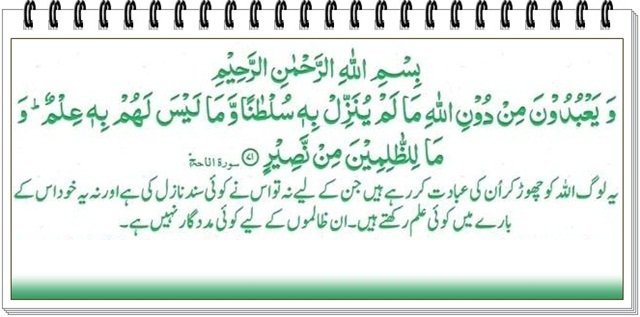 بِسْمِ اللهِ الرَّحْمٰنِ الرَّحِيْمِ
وَ يَعْبُدُوْنَ مِنْ دُوْنِ اللهِ مَا لَمْ يُنَزِّلْ بِهٖ سُلْطٰنًا وَّ مَا لَيْسَ لَهُمْ بِهٖ عِلْمٌ ؕ وَ
مَا لِلظّٰلِمِيْنَ مِنْ نَّصِيْرٍ ﴿۷۱﴾ سورة الحج
یہ لوگ اللہ کو چھوڑ کر اُن کی عبادت کر رہے ہیں جن کے لیے نہ تو اس نے کوئی سند نازل کی ہے اور نہ یہ خود اس کے
بارے میں کوئی علم رکھتے ہیں۔ ان ظالموں کے لیے کوئی مددگار نہیں ہے۔